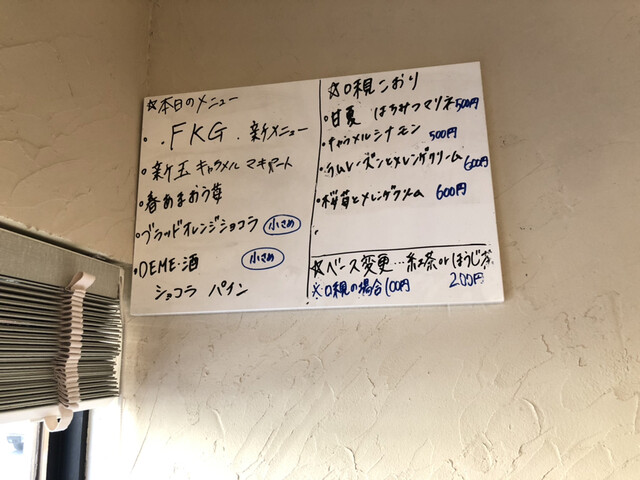 ☆本日のメニュー
・.FKG.新メニュー
・新玉キャラメルマキアート
・春あまおう苺
・ブラッドオレンジショコラ 小さめ
・DEME・酒 小さめ
ショコラ パイン
☆口親こおり
・甘夏 はちみつマリネ500円
・キャラメルシナモン 500円
・ラムレーズンとメレンゲクリーム 600円
・桜苺とメレンゲクリーム 600円
☆ベース変更…紅茶orほうじ茶 200円
※口親の場合100円